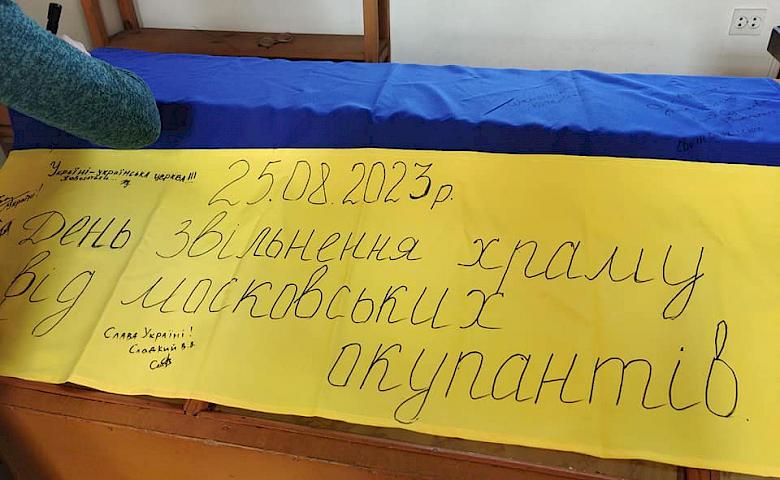 Україні-українська церква!!!
25.08.2023р.
День звільнення храму
від московських
окупантів
Слава Україні!
Сладкий В.В.